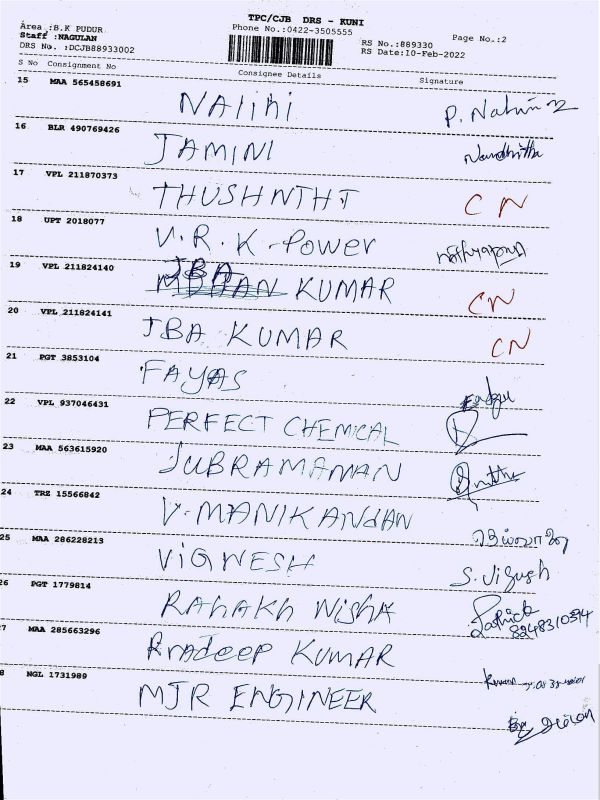 TPC/CJB DRS - KUNI
Area :B.K PUDUR
Phone No.:0422-3505555
Page No.:2
Staff :NAGULAN
RS No.:889330
DRS No. :DCJB88933002
RS Date:10-Feb-2022
S No Consignment No Consignee Details Signature
15 MAA 565458691
NAlini P. Nalini
16 BLR 490769426
JAMINI Nandhitha
17 VPL 211870373
THUSHNTHT CN
18 UPT 2018077
V.R.K-Power
19 VPL 211824140
JBA
KUMAR CN
20 VPL 211824141
JBA KUMAR CN
21 PGT 3853104
FAYAS
22 VPL 937046431
PERFECT CHEMICAL
23 MAA 563615920
JUBRAMAMAN
24 TRZ 15566842
V.MANIKANdAN
25 MAA 286228213
VIGNESH S. Vignesh
26 PGT 1779814
RAhAKh NishA
8248310394
7 MAA 285663296
Pradeep KUMAR
8 NGL 1731989
MJR ENGINEER